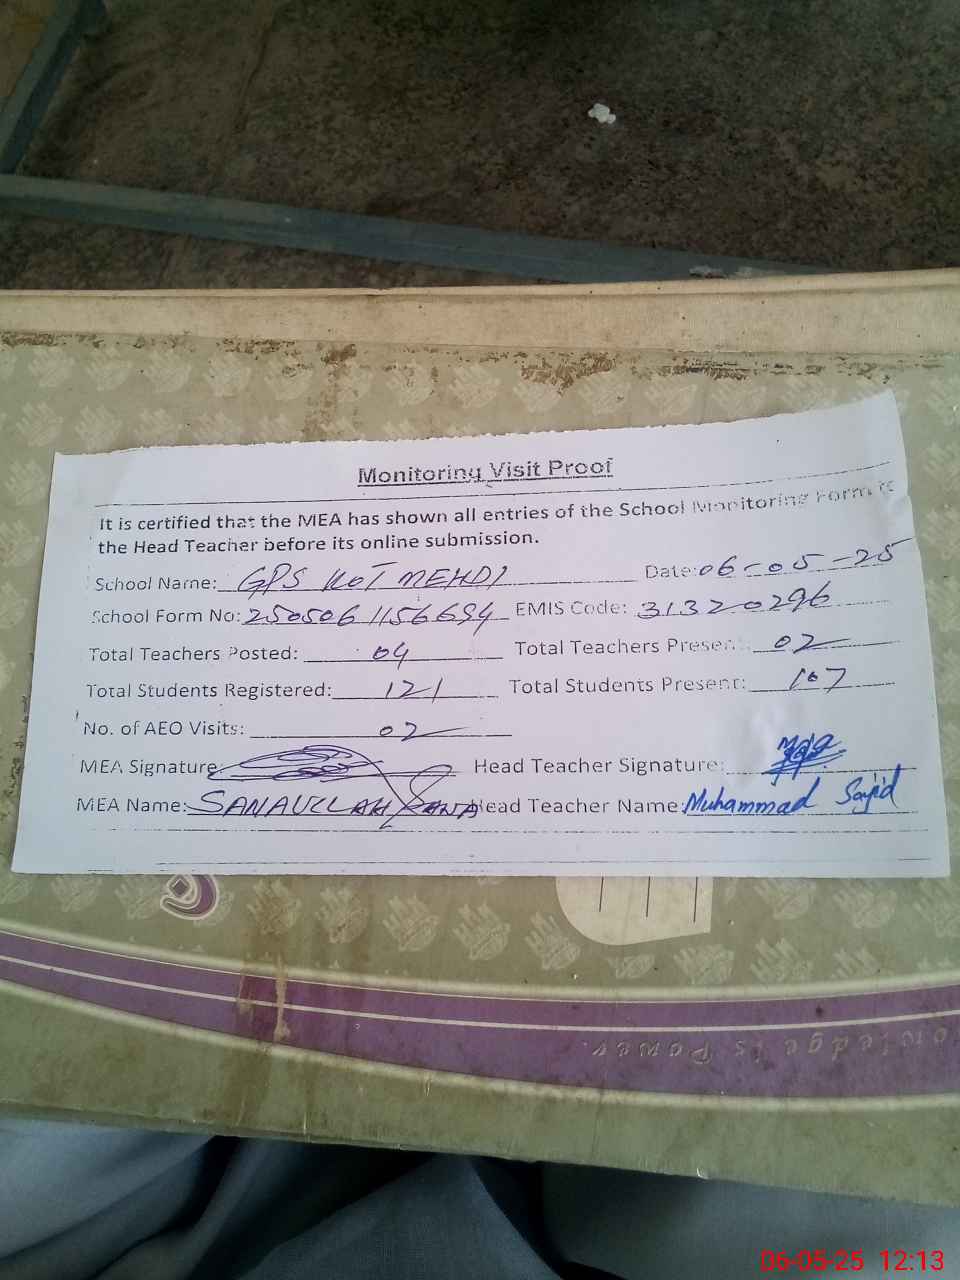 Monitoring Visit Proof
It is certified that the MEA has shown all entries of the School Monitoring Form to
the Head Teacher before its online submission.
School Name: GPS KOT MEHDI Date: 06-05-25
School Form No: 2505061156694 EMIS Code: 31320296
Total Teachers Posted: 04 Total Teachers Present: 02
Total Students Registered: 121 Total Students Present: 107
No. of AEO Visits: 02
MEA Signature: Head Teacher Signature:
MEA Name: SANAULLAH RANA Head Teacher Name: Muhammad Sajid
owledge is Power.
06-05-25 12:13